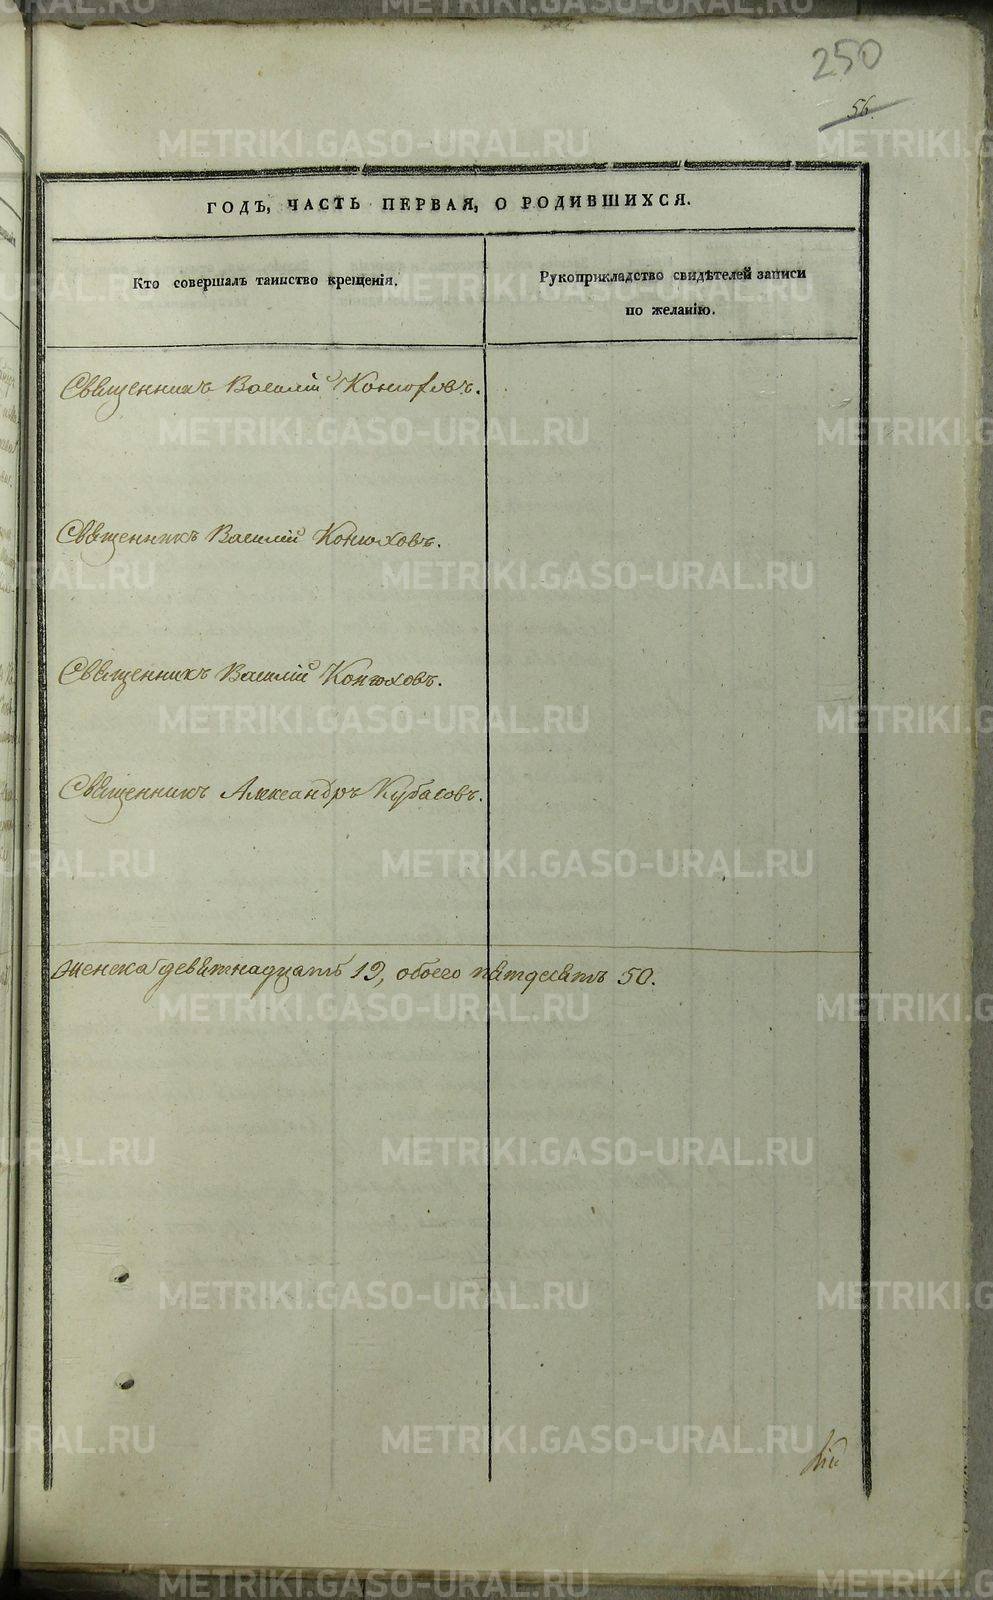 250
56.
ГОДЪ, ЧАСТЬ ПЕРВАЯ, О РОДИВШИХСЯ.
Кто совершалъ таинство крещенія.
Рукоприкладство свидѣтелей записи
по желанію.
Священникъ Василій Конюховъ.
Священникъ Василій Конюховъ.
Священникъ Василій Конюховъ.
Священникъ Александръ Кубасовъ.
женска девятнадцать 19, обоего пятдесятъ 50.
METRIKI.GASO-URAL.RU